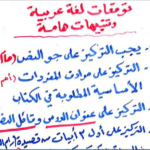 توقعات لغة عربية
وتنبيهات هامة
يجب التركيز على جو النص
التركيز على مرادف المفردات
الأساسية المطلوبة في الكتاب
التركيز على عنوان الدرس وقائل
التركيز على أول ٣ أبيات